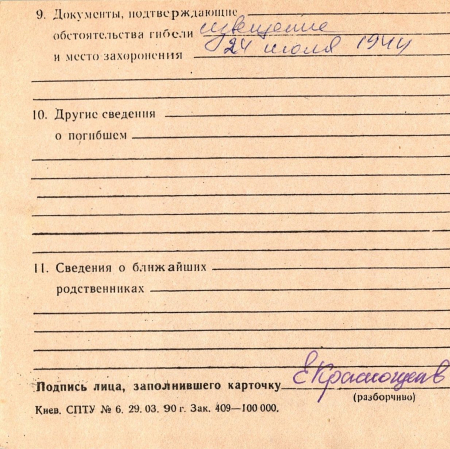 9. Документы, подтверждающие
обстоятельства гибели извещение
и место захоронения 24 июля 1944
10. Другие сведения
о погибшем
11. Сведения о ближайших
родственниках
Подпись лица, заполнившего карточку
(разборчиво)
Киев. СПТУ № 6. 29. 03. 90 г. Зак. 409—100 000.